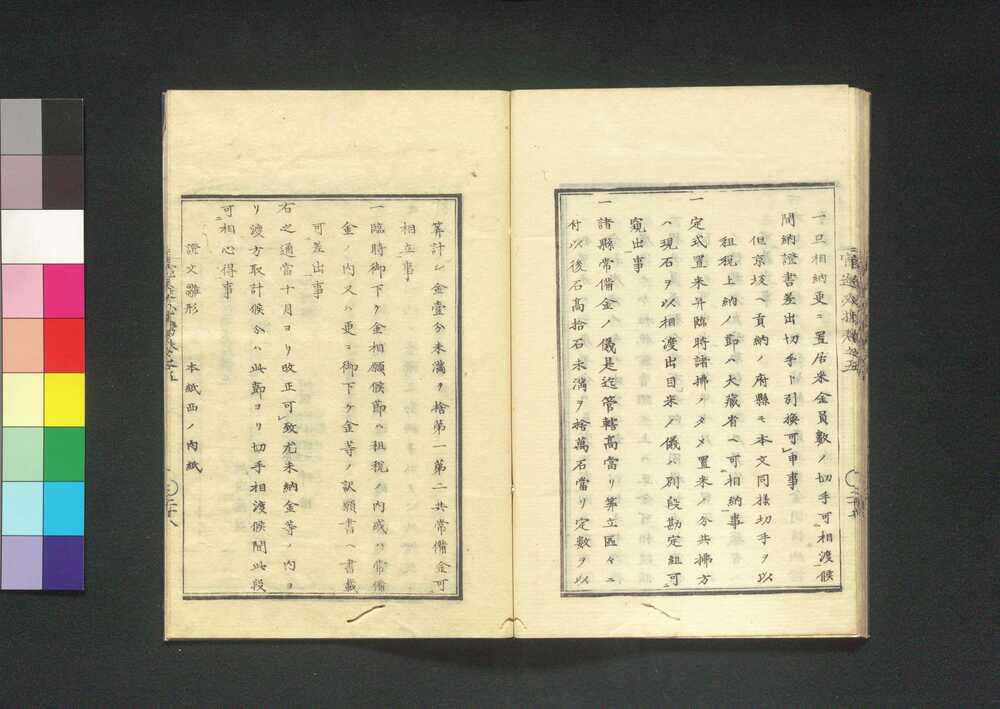 一旦相納更ニ置居米金員數ノ切手可相渡候
間納證書差出切手ト引換可申事
但京坂ヘ貢納ノ府縣モ本文同樣切手ヲ以
租税上納ノ節ハ大藏省ヘ可相納事
一定式置米并臨時諸拂ノタメ置米ノ分共拂方
ハ現石ヲ以相渡出目米ノ儀ハ別段勘定組可
窺出事
一諸縣常備金ノ儀是迄管轄高當リ筭立區々ニ
付以後石高拾石未滿ヲ捨萬石當リ定數ヲ以
筭計シ金壹分未滿ヲ捨第一第二共常備金可
相立事
一臨時御下ケ金相願候節ハ租税ノ内或ハ常備
金ノ内又ハ更ニ御下ケ金等ノ訳願書ヘ書載
可差出事
右之通當十月ヨリ改正可致尤未納金等ノ内ヨ
リ渡方取計候分ハ此節ヨリ切手相渡候間此段
可相心得事
證文雛形 本紙西ノ内紙